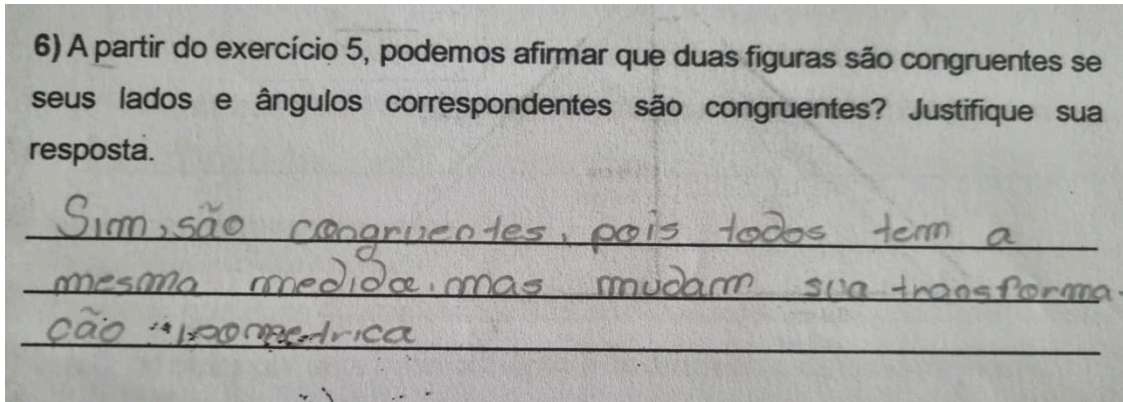 6) A partir do exercício 5, podemos afirmar que duas figuras são congruentes se
seus lados e ângulos correspondentes são congruentes? Justifique sua
resposta.
Sim, são congruentes, pois todos tem a
mesma medida, mas mudam sua transforma-
ção